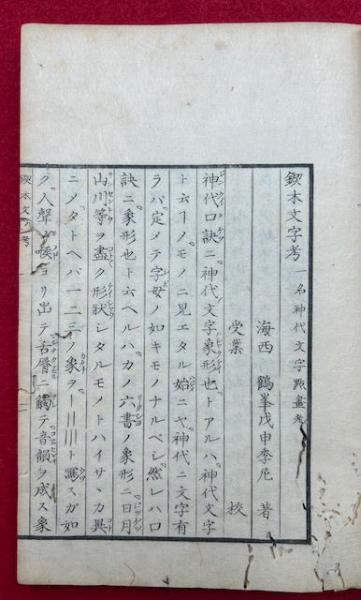 鍥木文字考 一名神代文字
海西 鶴峯戊申季尼 著
受業 校
神代口訣ニ神代文字象形也トアルハ神代文字
ト云ヿノモノニ見エタル始ニヤ神代ニ文字有
ラバ定メテ字母ノ如キモノナルベシ然レハ口
訣ニ象形也ト云ヘルハカノ六書ノ象形ニ日月
山川等ヲ盡ク形狀シタルモノトハイサヽカ異
ニノタトヘバ一二三ノ象ヲ〡〢〣ト寫スガ如
ク人聲ノ喉ヨリ出テ舌脣ニ觸テ音韻ヲ成ス象
木文字考